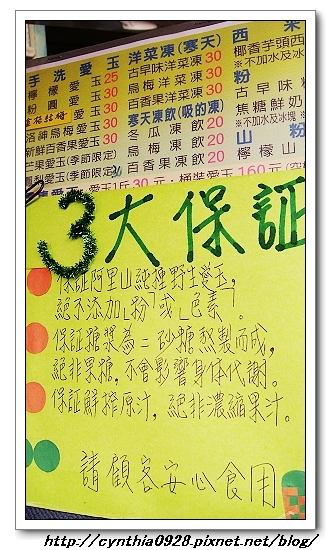 手洗愛玉
檸檬愛玉 25
粉圓愛玉 30
洛神烏梅愛玉 30
新鮮百香果愛玉 30
芒果愛玉(季節限定)
鳳梨愛玉(季節限定)
愛玉1斤 30元、桶裝愛玉 160元
洋菜凍(寒天)
古早味洋菜凍 30
烏梅洋菜凍 30
百香果洋菜凍 30
寒天凍飲(吸的凍)
冬瓜凍飲 20
烏梅凍飲 20
百香果凍飲 20
西米
椰香芋頭西
*不加水及冰
粉
古早味
焦糖鮮奶
*不加水及冰塊
山粉
檸檬山
3大保証
保証阿里山純種野生愛玉,
絕不添加「粉」或「色素」。
保証糖漿為二砂糖熬製而成,
絕非果糖,不會影響身体代謝。
保証鮮搾原汁,絕非濃縮果汁。
請顧客安心食用
http://cynthia0928.pixnet.net/blog/